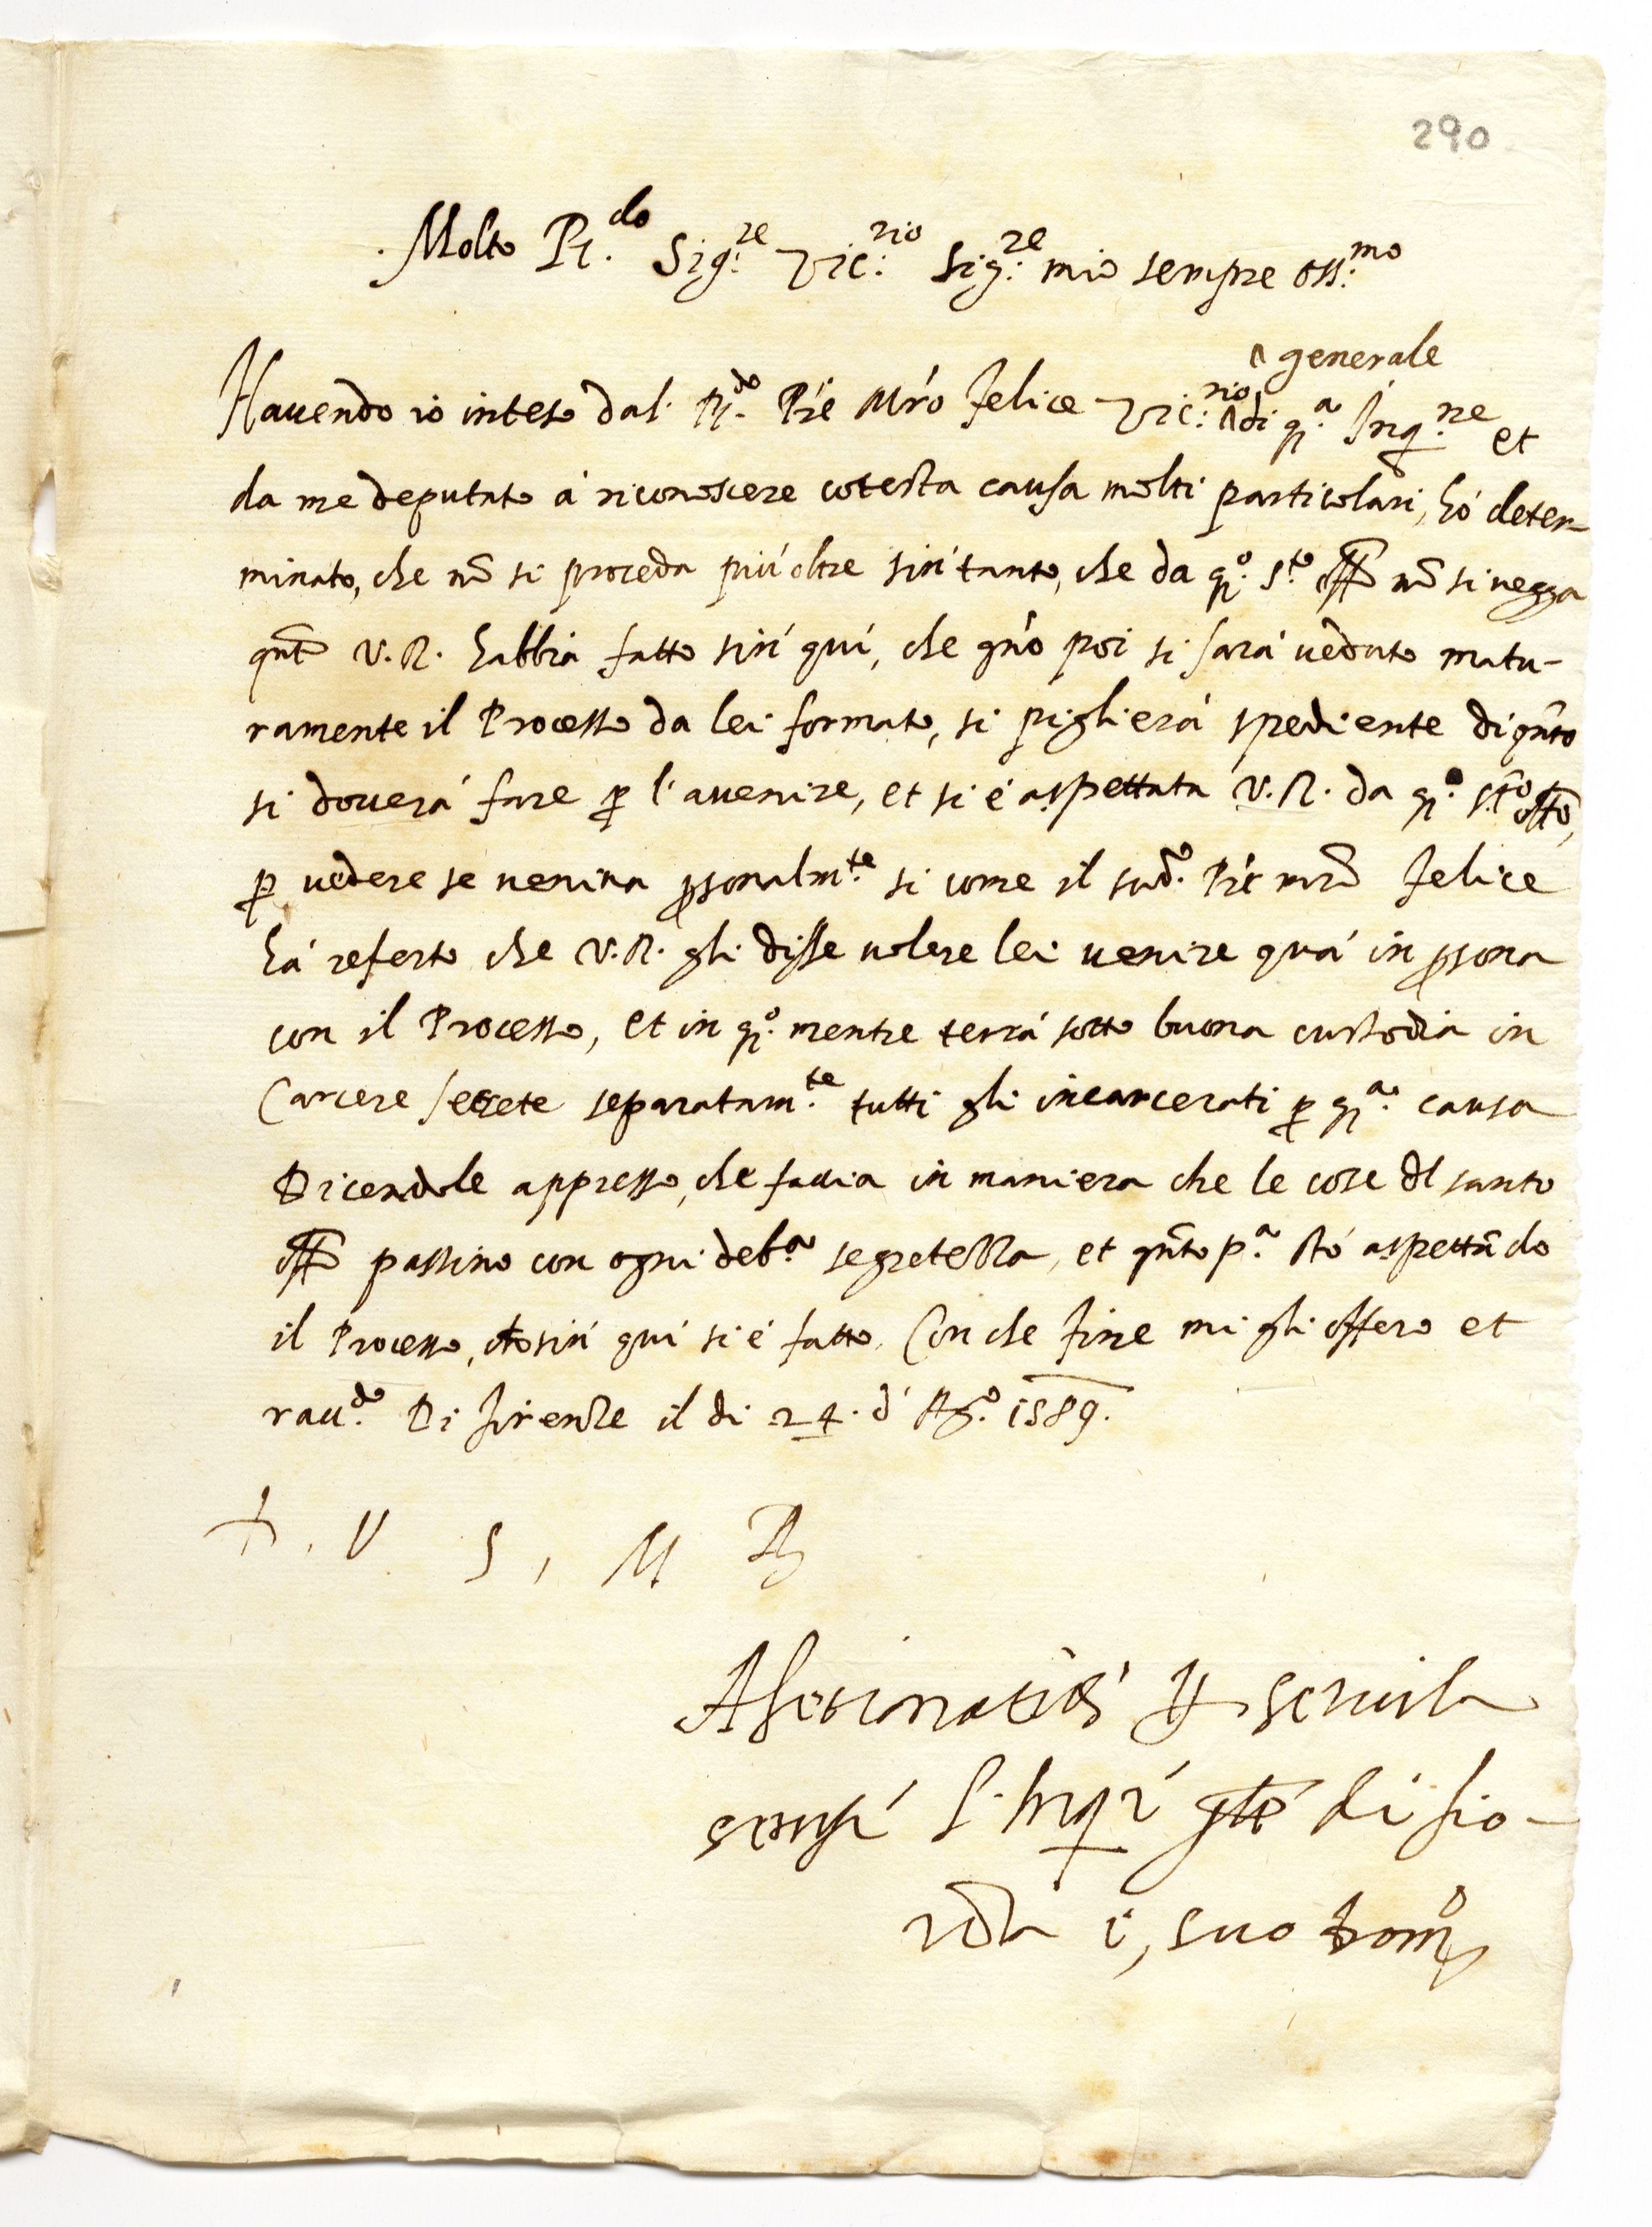 290
Molto R.do Sig.re Vic.rio Sig.re mio sempre oss.mo
generale
Havendo io inteso dal R.do Pre Mro Felice Vic.rio di q.a Inq.ne et
da me deputato à riconoscere cotesta causa molti particolari, hò deter-
minato, che nõ si proceda più oltre sin tanto, che da q.o S.to offo nõ si vegga
qnto V.R. habbia fatto sin quì, che qño poi si sarà veduto matu-
ramente il Processo da lei formato, si piglierà spediente di qnto
si doverà fare p l'avenire, et si è aspettata V.R. da q.o Sto offo,
p vedere se veniva psonalm.te si come il sud.o Pre mro Felice
hà referto che V.R. gli disse volere lei venire quà in psona
con il Processo, et in q.o mentre terrà sotto buona custodia in
Carcere secrete separatam.te tutti gli incarcerati p q.a causa
Dicendole appresso, che faccia in maniera che le cose dl santo
offo passino con ogni deb.a segretezza, et qnto p.a stò aspettãdo
il Processo, che sin quì si è fatto. Con che fine mi gli offero et
rac.do Di Firenze il di 24. d'Ag.o 1589.
V S M R
servir
di Fio-
suo